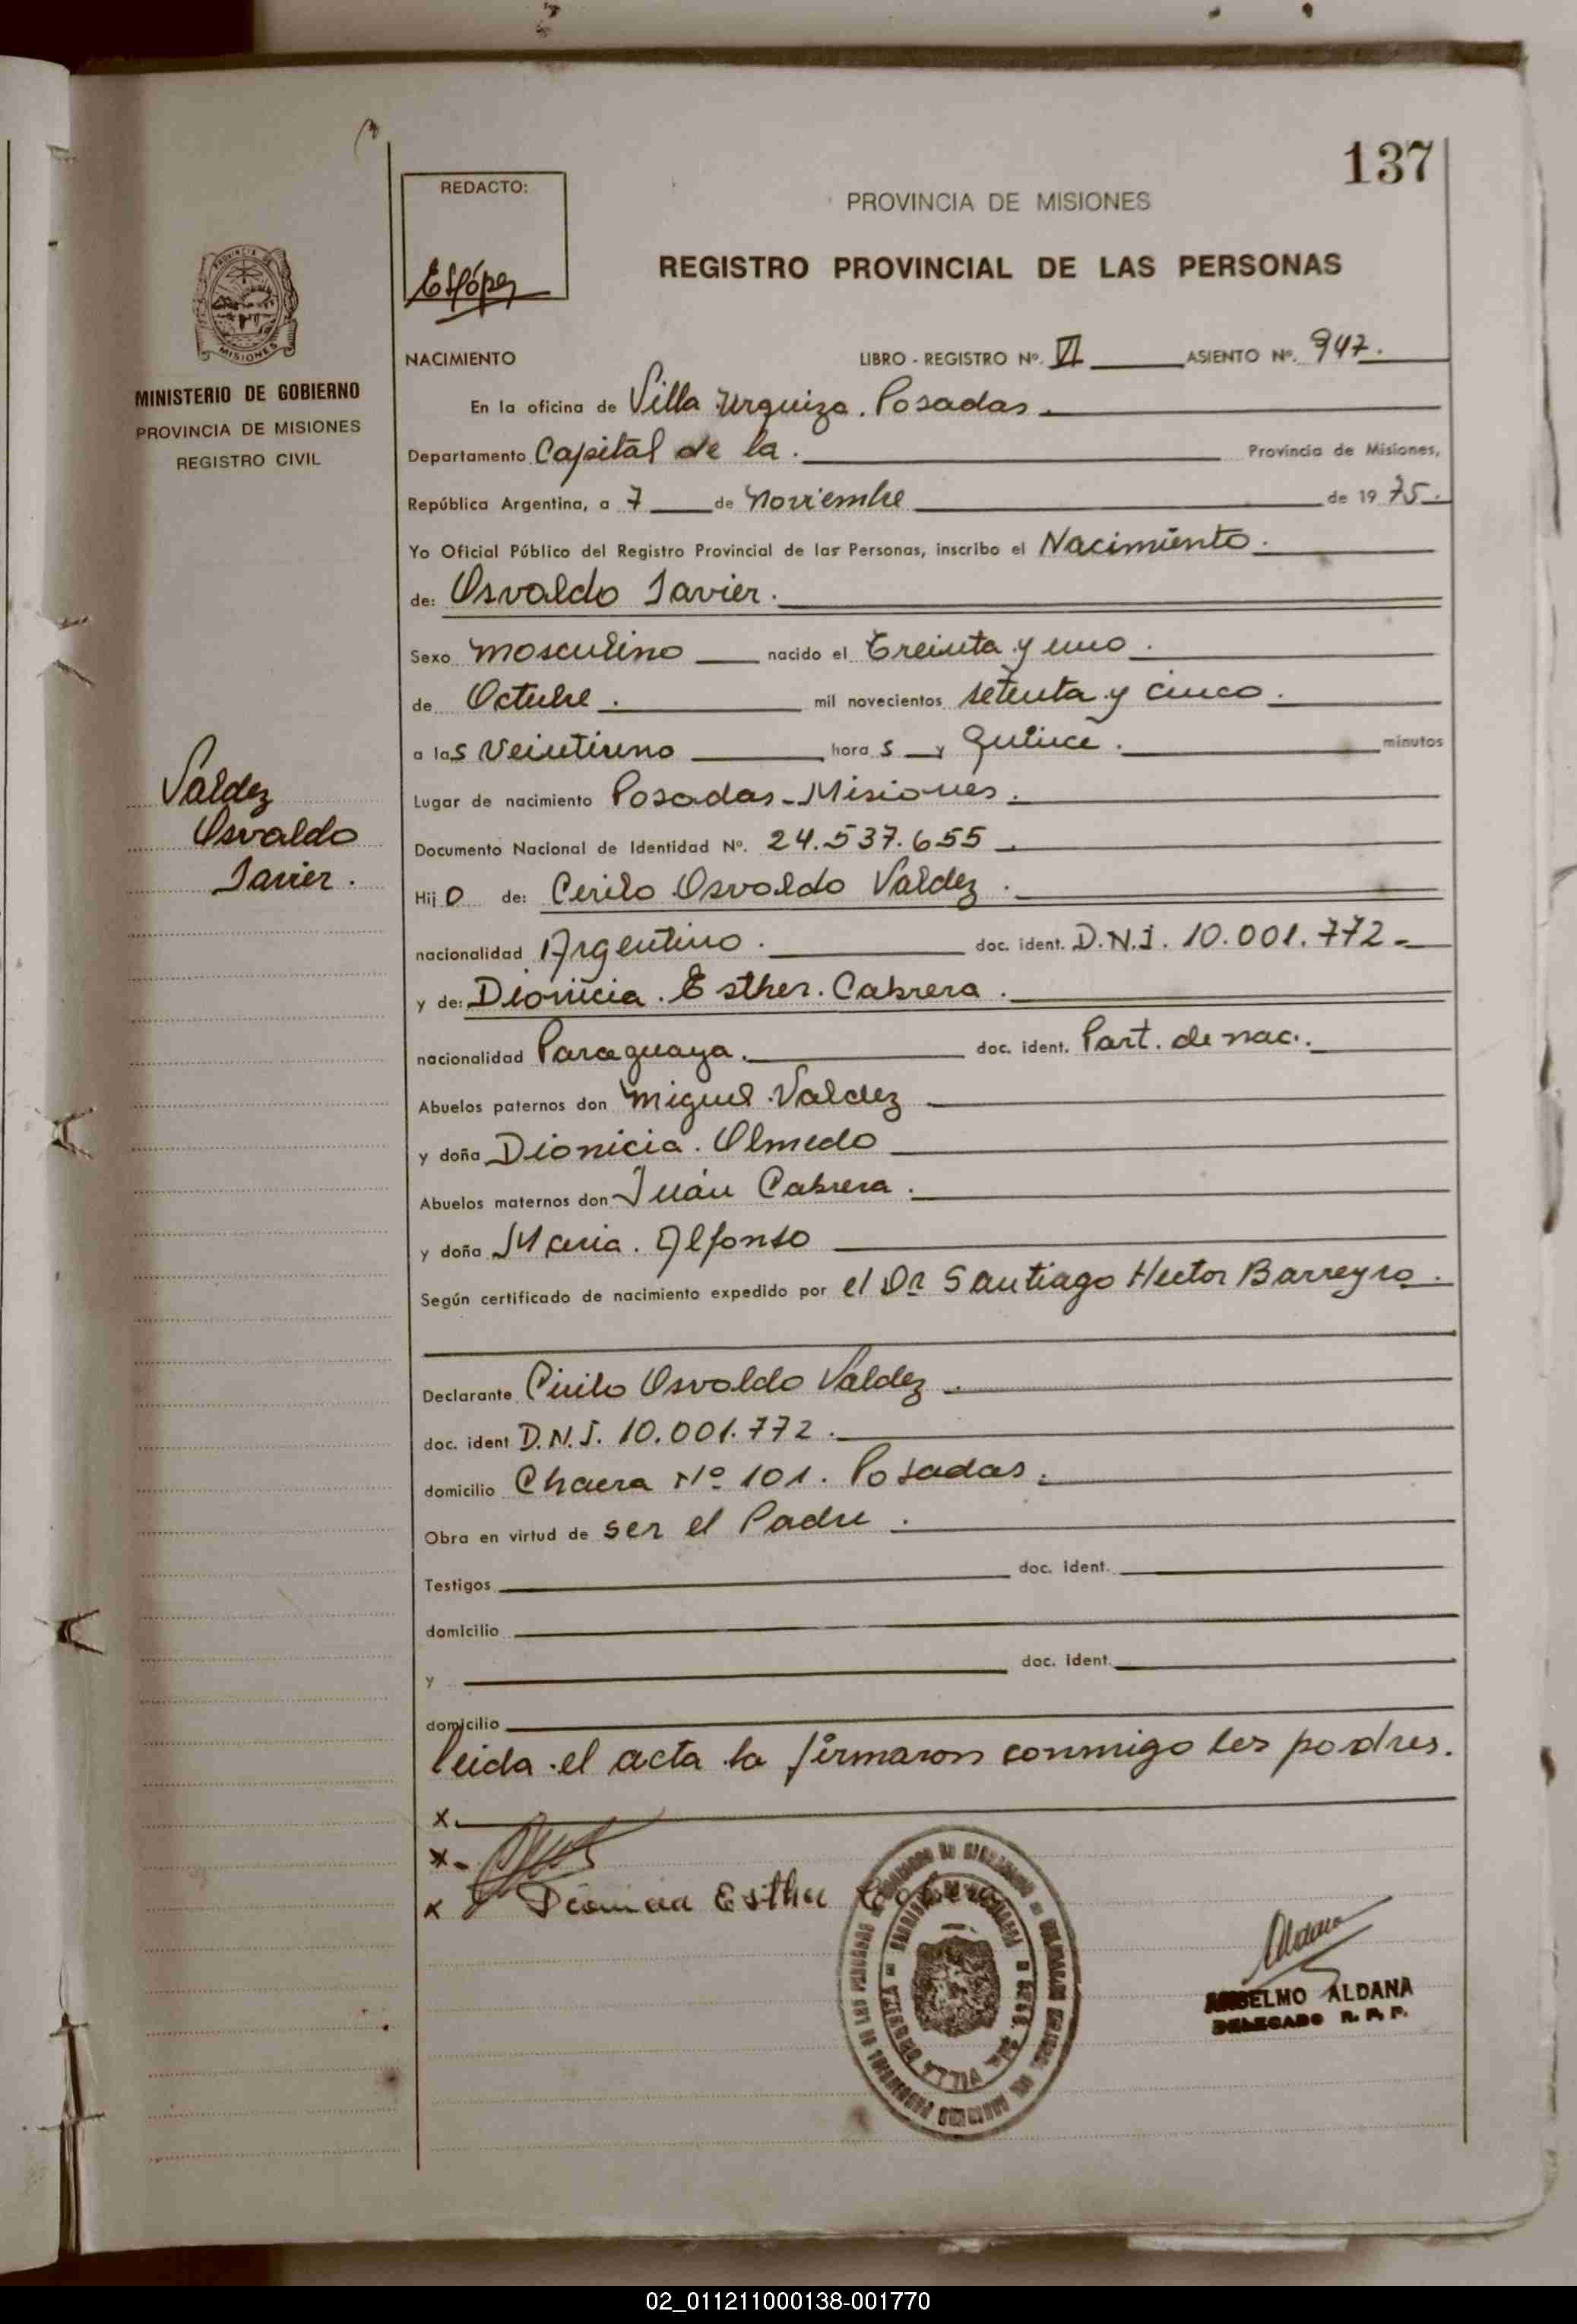 137
REDACTO:
PROVINCIA DE MISIONES
REGISTRO PROVINCIAL DE LAS PERSONAS
PROVINCIA DE
MISIONES
MINISTERIO DE GOBIERNO
PROVINCIA DE MISIONES
REGISTRO CIVIL
NACIMIENTO LIBRO - REGISTRO Nº. VI ASIENTO Nº. 947.
En la oficina de Villa Urquiza. Posadas.
Departamento Capital de la. Provincia de Misiones,
República Argentina, a 7 de Noviembre de 1975.
Yo Oficial Público del Registro Provincial de las Personas, inscribo el Nacimiento.
de: Osvaldo Javier.
Sexo masculino nacido el treinta y uno.
de Octubre. mil novecientos setenta y cinco.
a las veintiuno horas y quince. minutos
Valdez
Osvaldo
Javier.
Lugar de nacimiento Posadas-Misiones.
Documento Nacional de Identidad Nº. 24.537.655
Hijo de: Cirilo Osvaldo Valdez.
nacionalidad Argentino. doc. ident. D.N.I. 10.001.772-
y de: Dionicia. Esther. Cabrera.
nacionalidad Paraguaya. doc. ident. Part. de nac..
Abuelos paternos don Miguel Valdez
y doña Dionicia. Olmedo
Abuelos maternos don Juán Cabrera.
y doña Maria. Alfonso
Según certificado de nacimiento expedido por el Dr Santiago Hector Barreyro.
Declarante Cirilo Osvaldo Valdez.
doc. ident D.N.I. 10.001.772.
domicilio Chacra Nº 101. Posadas.
Obra en virtud de ser el Padre.
Testigos doc. ident.
domicilio
y doc. ident.
domicilio
leida el acta la firmaron conmigo los padres.
x.
x-
x Dionicia Esther Cabrera
VILLA URQUIZA
ANSELMO ALDANA
DELEGADO R. P. P.
02_011211000138-001770